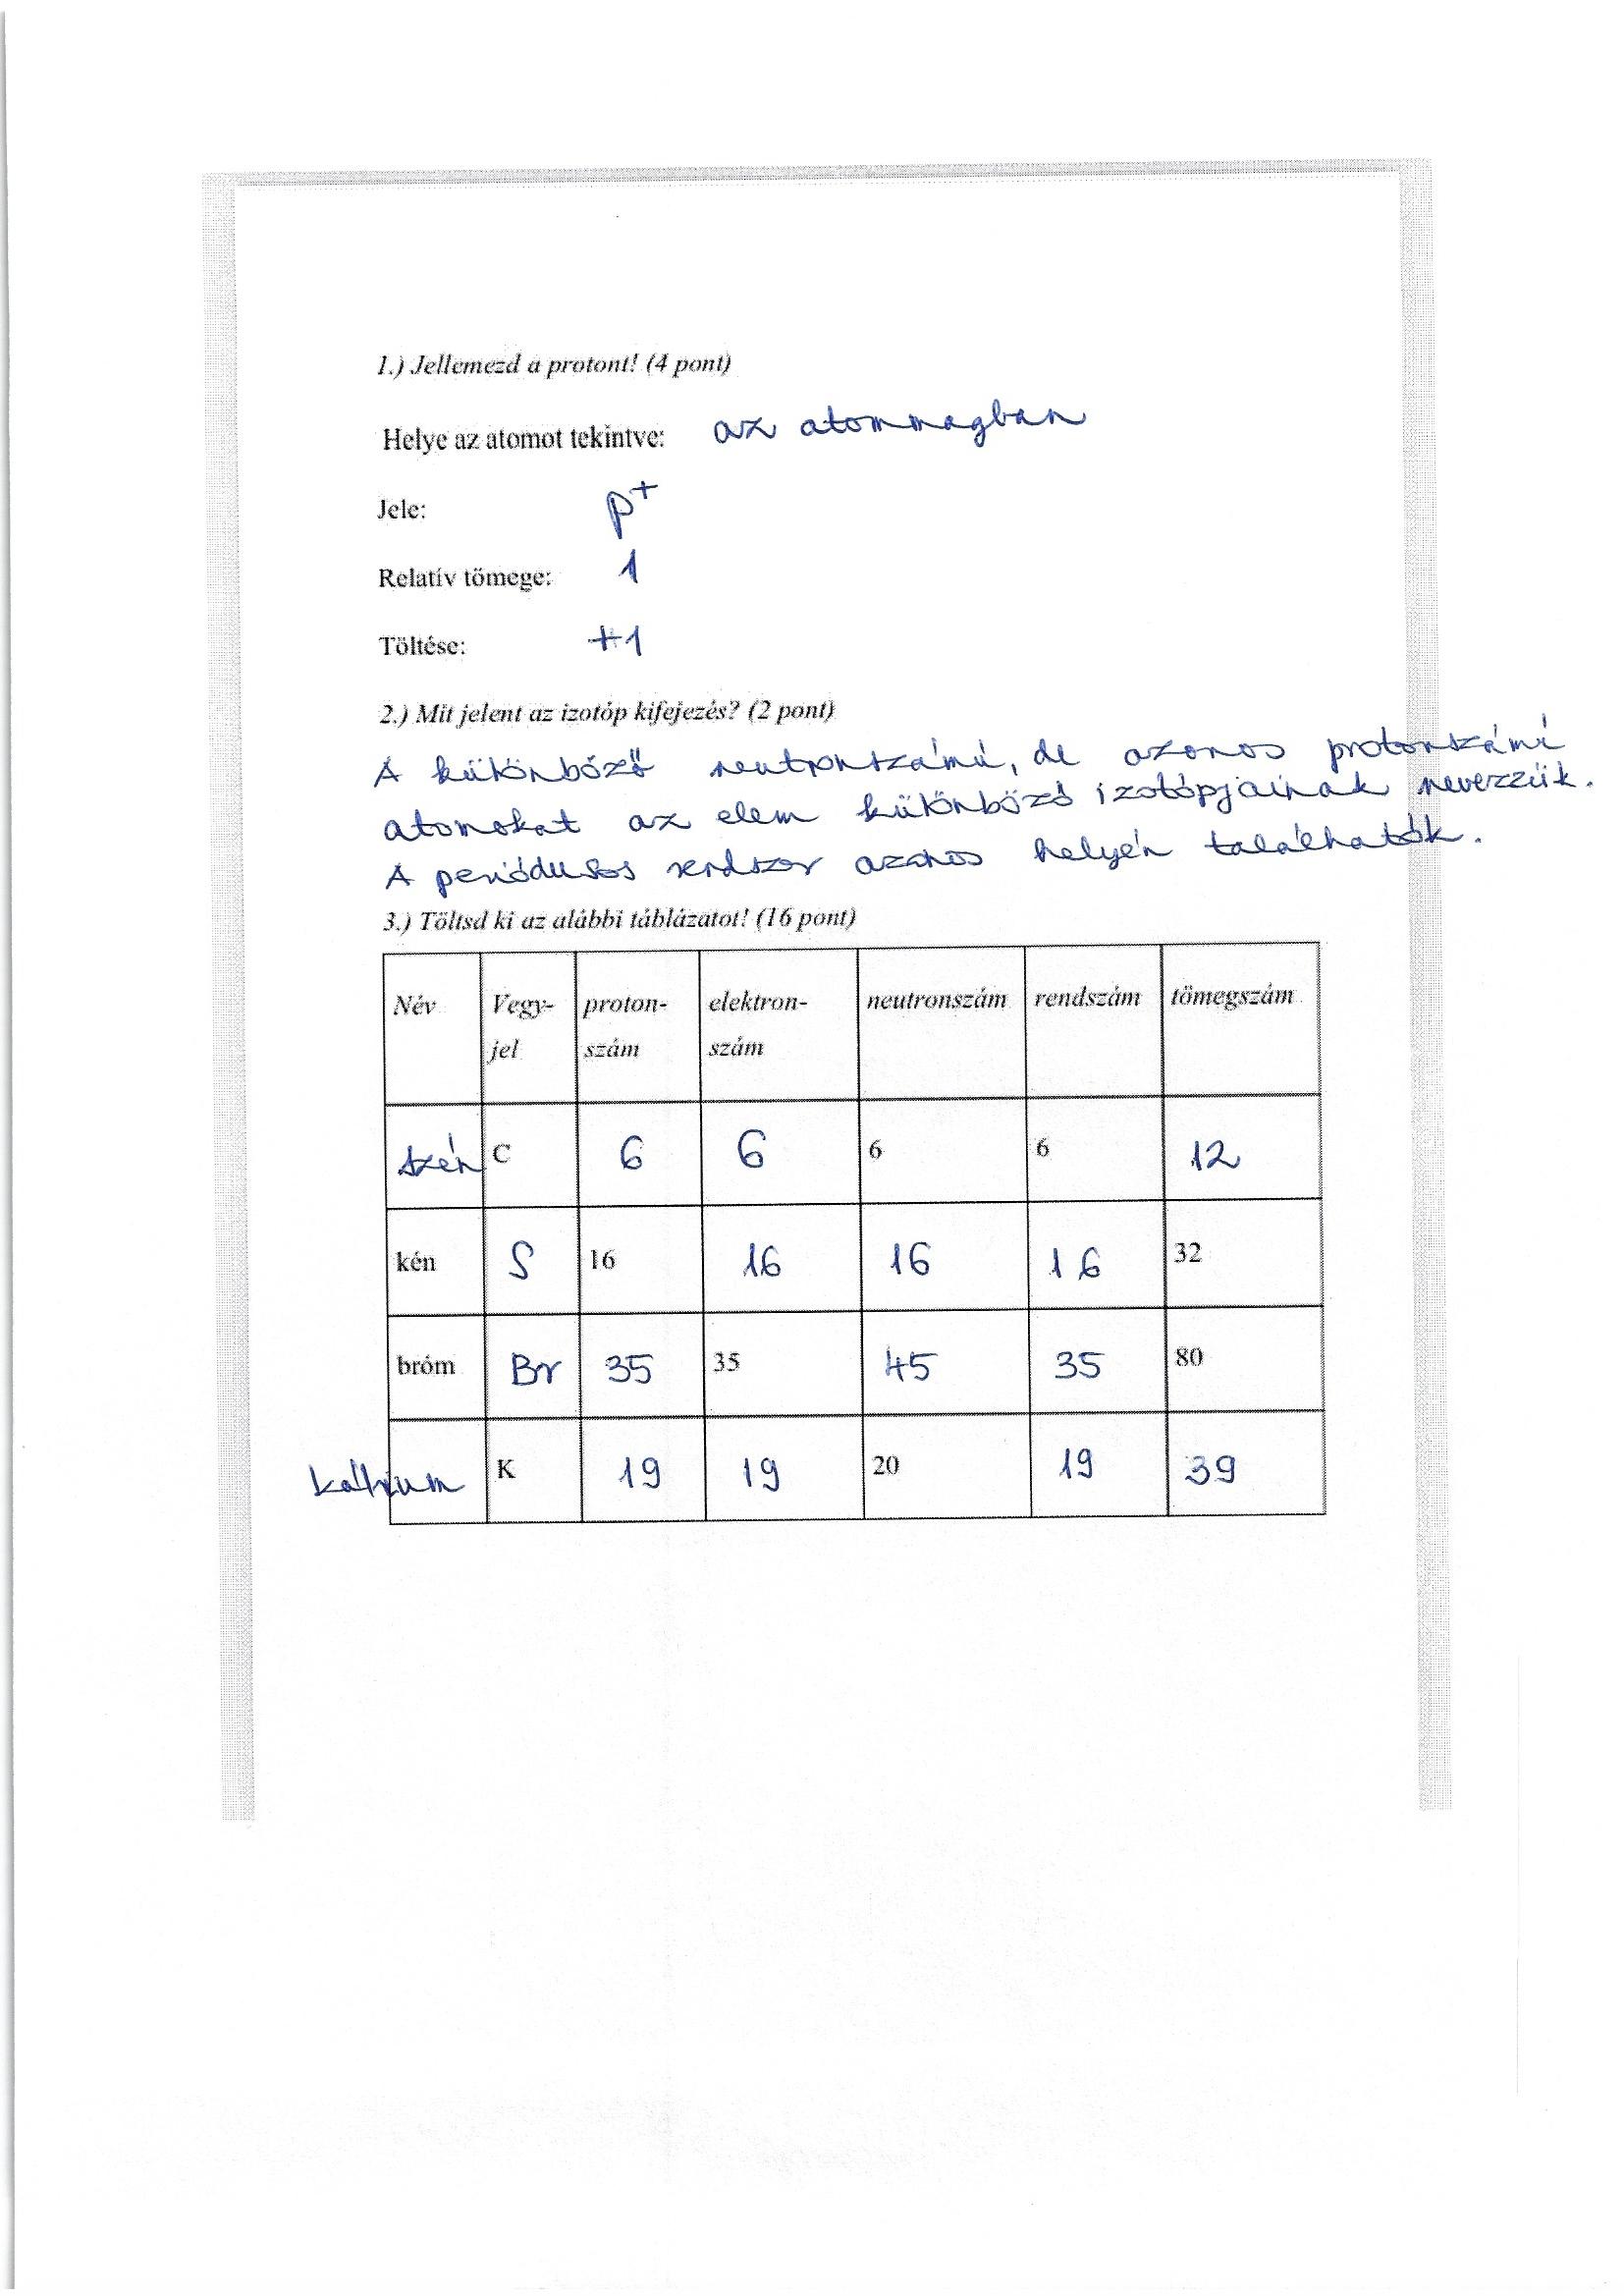 1.) Jellemezd a protont! (4 pont)
Helye az atomot tekintve: az atommagban
Jele: p⁺
Relatív tömege: 1
Töltése: +1
2.) Mit jelent az izotóp kifejezés? (2 pont)
A különböző neutronszámú, de azonos protonszámú
atomokat az elem különböző izotópjainak nevezzük.
A periódusos rendszer azonos helyén találhatók.
3.) Töltsd ki az alábbi táblázatot! (16 pont)
Név Vegy- proton- elektron- neutronszám rendszám tömegszám
jel szám szám
szén C 6 6 6 6 12
kén S 16 16 16 16 32
bróm Br 35 35 45 35 80
kálium K 19 19 20 19 39